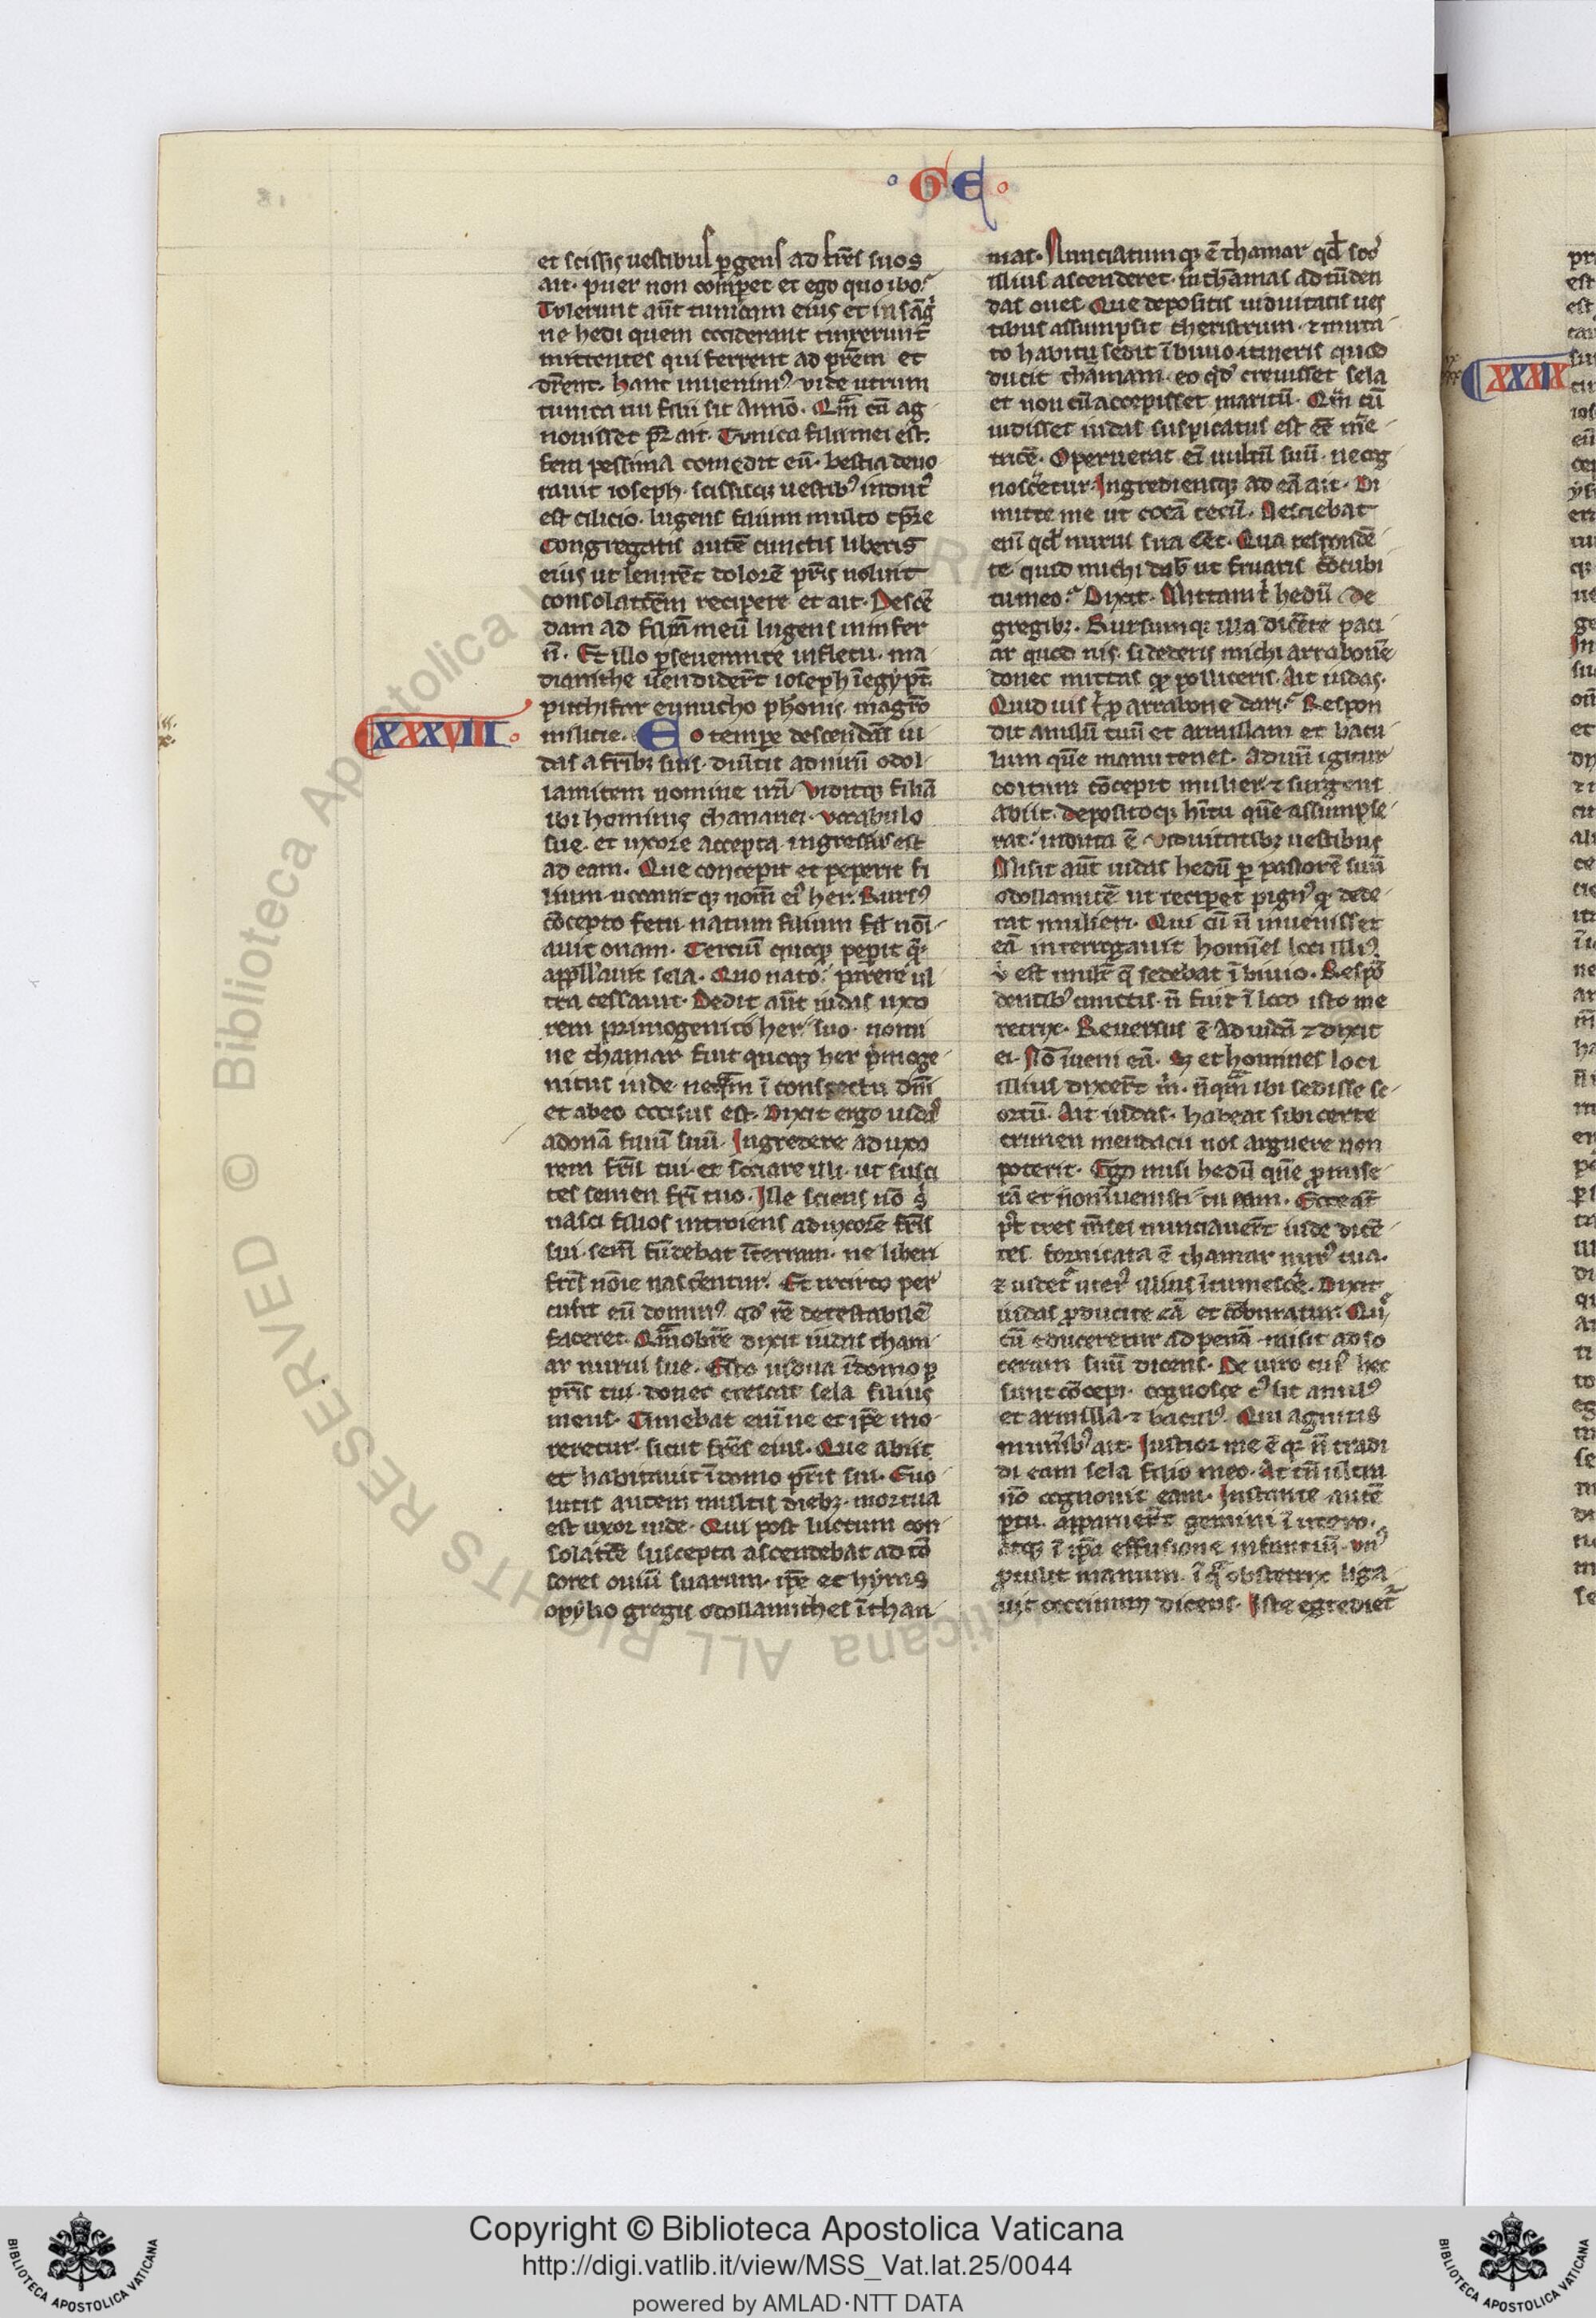 G E
et scissis uestibus p̱gens ad fr̄es suos
ait. puer non comp̱et et ego quo ibo.
Tvlerunt aūt tunicam eius et in sāgͥ
ne hedi quem occiderant tinxerunt
mittentes qui ferrent ad pr̄em et
dr̄ent. hanc inuenimꝰ vide utrum
tunica tui filii sit Annō. Qm̄ cū ag
nouisset pr̄ ait. Tvnica filii mei est.
fera pessima comedit eū. bestia deuo
rauit ioseph. scissisqꝫ uestibꝰ indutꝰ
est cilicio. lugens filium multo tp̄re
Congregatis autē cunctis liberis
eius ut lenirēt dolorē pr̄is noluit
consolatōem recipere et ait. Descē
dam ad filiū meū lugens in infer
n̄. Et illo p̱seuerante in fletu. ma
dianithe uendider̄t ioseph ī egypt̄.
puthifar eunucho ph̄onis. magr̄o
XXXVIII
milicie. Eo tempe descendēs iu
das a fr̄ibꝫ suis. diūtit ad uirū odol
lamitem nomine irā viditqꝫ filiā
ibi hominis chananei. vocabulo
sue. et uxore accepta. ingressus est
ad eam. Que concepit et peperit fi
lium uocauitqꝫ nom̄ eiꝰ her. Rursꝰ
cōcepto fetu natum filium nōi
auit onam. Terciū quoqꝫ pepit q̄.
appll'auit sela. Quo nato. parere ul
tra cessauit. Dedit aūt iudas uxo
rem primogenito her suo nomi
ne thamar fuit quoqꝫ her p̱moge
nitus iude neqͣm ī conspectu dn̄i
et ab eo occisus est. Dixit ergo iudas
ad onā filiū suū. Ingredere ad uxo
rem fr̄is tui. et sociare illi. ut susci
tes semen fr̄i tuo. Ille sciens nō sͥ
nasci filios introiens ad uxorē fr̄is
sui. sem̄ fūdebat ī terram. ne liberi
fr̄is nōie nascerentur. Et idcirco per
cussit eū dominꝰ qd' rē detestabilē
faceret. Qm̄obrē dixit iudas tham
ar nurui sue. Esto uidua ī domo p
pr̄is tui donec crescat sela filius
meus. Timebat enī ne et ip̄e mo
reretur. sicut fr̄es eius. Que abiit
et habitauit ī domo pr̄is sui. Euo
lutis autem multis diebꝫ. mortua
est uxor iude. Qui post luctum con
solatōe suscepta ascendebat ad tō
sores ouiū suarum. ip̄e et hyras
opylio gregis odollamithes ī tham
nas. Nunciatumqꝫ ē thamar qd' soc'
illius ascenderet in thamnas ad tūden
das oues. Que depositis uiduitatis ues
tibus assumpsit theristrum. ⁊ muta
to habitu sedit ī biuio itineris quod
ducit thamnam. eo qd' creuisset sela
et non eū accepisset maritū. Qm̄ cū
uidisset iudas suspicatus est eē me
tricē. Operuerat eī uultū suū. ne cog
nosceretur. Ingrediensqꝫ ad eā ait. Di
mitte me ut coeā tecū. Nesciebat
enī qd' nurus sua eēt. Qua respondē
te. quid michi dab' ut fruaris cōcubi
tu meo. Dixit. Mittam tͥ hedū de
gregibꝫ. Rursumqꝫ illa dicente. paci
ar quod uis. si dederis michi arrabonē
donec mittas q̄ polliceris. Ait iudas.
Quid uis tͥ p̱ arrabone dari. Respon
dit anulū tuū et armillam et bacu
lum quē manu tenes. Ad unū igitur
coitum cōcepit mulier. ⁊ surgens
abiit. depositoqꝫ hītu quē assumpse
rat. induta ē viduitatibꝫ uestibus
Misit aūt iudas hedū p̱ pastorē suū
odollamitē. ut recip̱et pignꝰ q' dede
rat mulieri. Qui cū n̄ inuenisset
eā interrogauit homīes loci illiꝰ.
v̇ est mulr̄ q̄ sedebat ī biuio. Respō
dentibꝰ cunctis. n̄ fuit ī loco isto me
retrix. Reuersus ē ad iudā ⁊ dixit
ei. Nō īueni eā. Sꝫ et homines loci
illius dixer̄t mͥ. n̄qͣm ibi sedisse sc
ortū. Ait iudas. habeat sibi certe
crimen mendacii nos arguere non
poterit. Ego misi hedū quē p̱mise
rā et non īuenisti tu eam. Ecce aūt
pꝰt tres m̄ses nunciauer̄t iude dicē
tes. fornicata ē thamar nurꝰ tua.
⁊ uidet̄ uterꝰ illius ītumescere. Dixit
iudas p̱ducite eā et cōburatur. Que
cū educeretur ad penā. misit ad so
cerum suū dicens. De uiro cuiꝰ hec
sunt cōcepi. cognosce cꝰ sit anulꝰ
et armilla. ⁊ baculꝰ. Qui agnitis
munībꝰ ait. Iustior me ē qꝛ n̄ tradi
di eam sela filio meo. At tn̄ ultra
nō cognouit eam. Instante autē
p̱tu. apparuer̄t gemini ī utero.
atqꝫ ī ip̄a effusione infantiū. unꝰ
p̱tulit manum. ī qͣ obstetrix liga
uit coccinum dicens. Iste egrediet̄
XXXIX
Copyright © Biblioteca Apostolica Vaticana
http://digi.vatlib.it/view/MSS_Vat.lat.25/0044
powered by AMLAD·NTT DATA